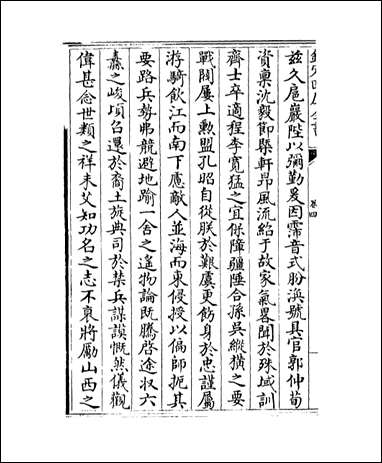 欽定四庫全書
卷四
茲久扈巖陛以彌勤爰因霈音式肦渙號具官郭仲荀
資稟沈毅節槩軒昂風流紹于故家氣畧聞於殊域訓
齊士卒適程李寬猛之宜保障疆陲合孫吳縱橫之要
戰鬬屢上勲盟孔昭自從朕於艱虞更飭身於忠謹屬
游騎飲江而南下慮敵人並海而東侵授以偏師扼其
要路兵勢弗競避地踰一舍之遙物論既騰啓途收六
纛之峻頃召還於裔土旋典司於禁兵謀謨慨然儀觀
偉甚念世類之祥未艾知功名之志不衰將勵山西之